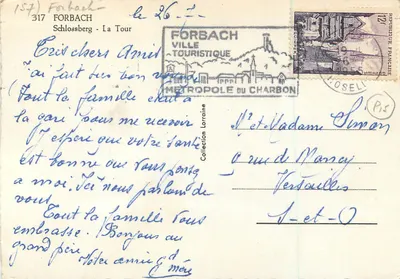 (57) Forbach
317 FORBACH
Schlossberg - La Tour
le 26-7-
Très chers Amis
J'ai fait très bon voyage
Tout la famille était à
la gare pour me recevoir
J'espère que votre santé
est bonne que vous pensez
a moi. Ici nous parlons de
vous.
Tout la famille vous
embrasse. Bonjour au
grand père
Votre amie gd mère
Collection Lorraine
FORBACH
VILLE
TOURISTIQUE
MÉTROPOLE DU CHARBON
12F
MOSELLE
Mr et Madame Simon
9 rue de Nancy
Versailles
S-et-O